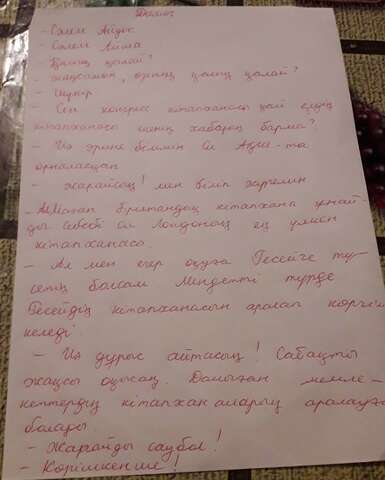 Диалог
- Сәлем Айдос
- Сәлем Айша
- Қалың қалай?
- жақсымын, өзіңнің қалың қалай?
- Шүкір
- Сен конгресс кітапханасы қай елдің
кітапханасы екенін хабарың барма?
- Иә әрине білемін Ол Ақш-та
орналасқан
- жарайсың! мен біліп жүргемін
- Ал маған Британдық кітапхана ұнай-
ды себебі ол Лондонның ең үлкен
кітапханасы.
- Ал мен егер оқуға Гесейге тү-
сетін болсам Міндетті түрде
Гесейдің кітапханасын аралап көргім
келеді.
- Иә дұрыс айтасың! Сабақты
жақсы оқысаң. Дамыған мемле-
кеттердің кітапханаларын аралауға
болады.
- Жарайды саубол!
- Көріскенше!